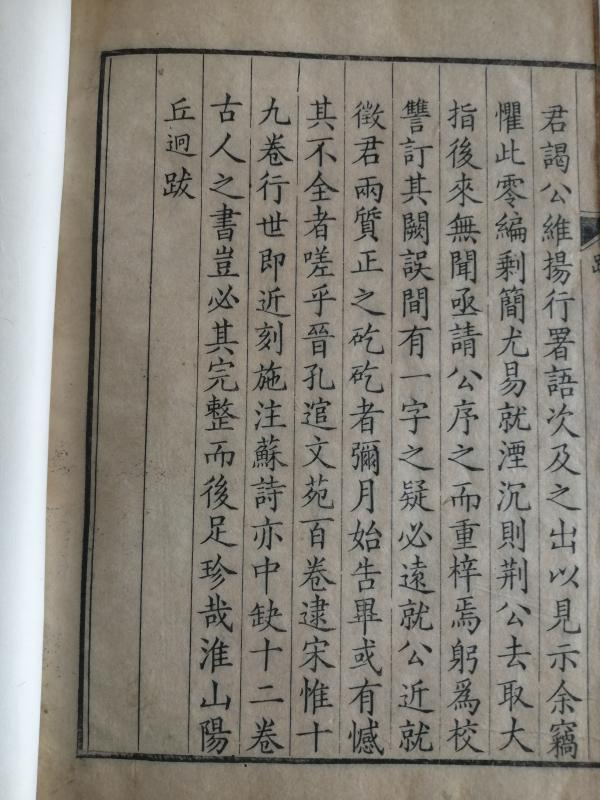 君謁公維揚行署語次及之出以見示余竊
懼此零編剩簡尤易就湮沉則荆公去取大
指後來無聞亟請公序之而重梓焉躬爲校
讐訂其闕誤間有一字之疑必遠就公近就
徵君兩質正之矻矻者彌月始告畢或有憾
其不全者嗟乎晉孔逭文苑百卷逮宋惟十
九卷行世即近刻施注蘇詩亦中缺十二卷
古人之書豈必其完整而後足珍哉淮山陽
丘迥跋